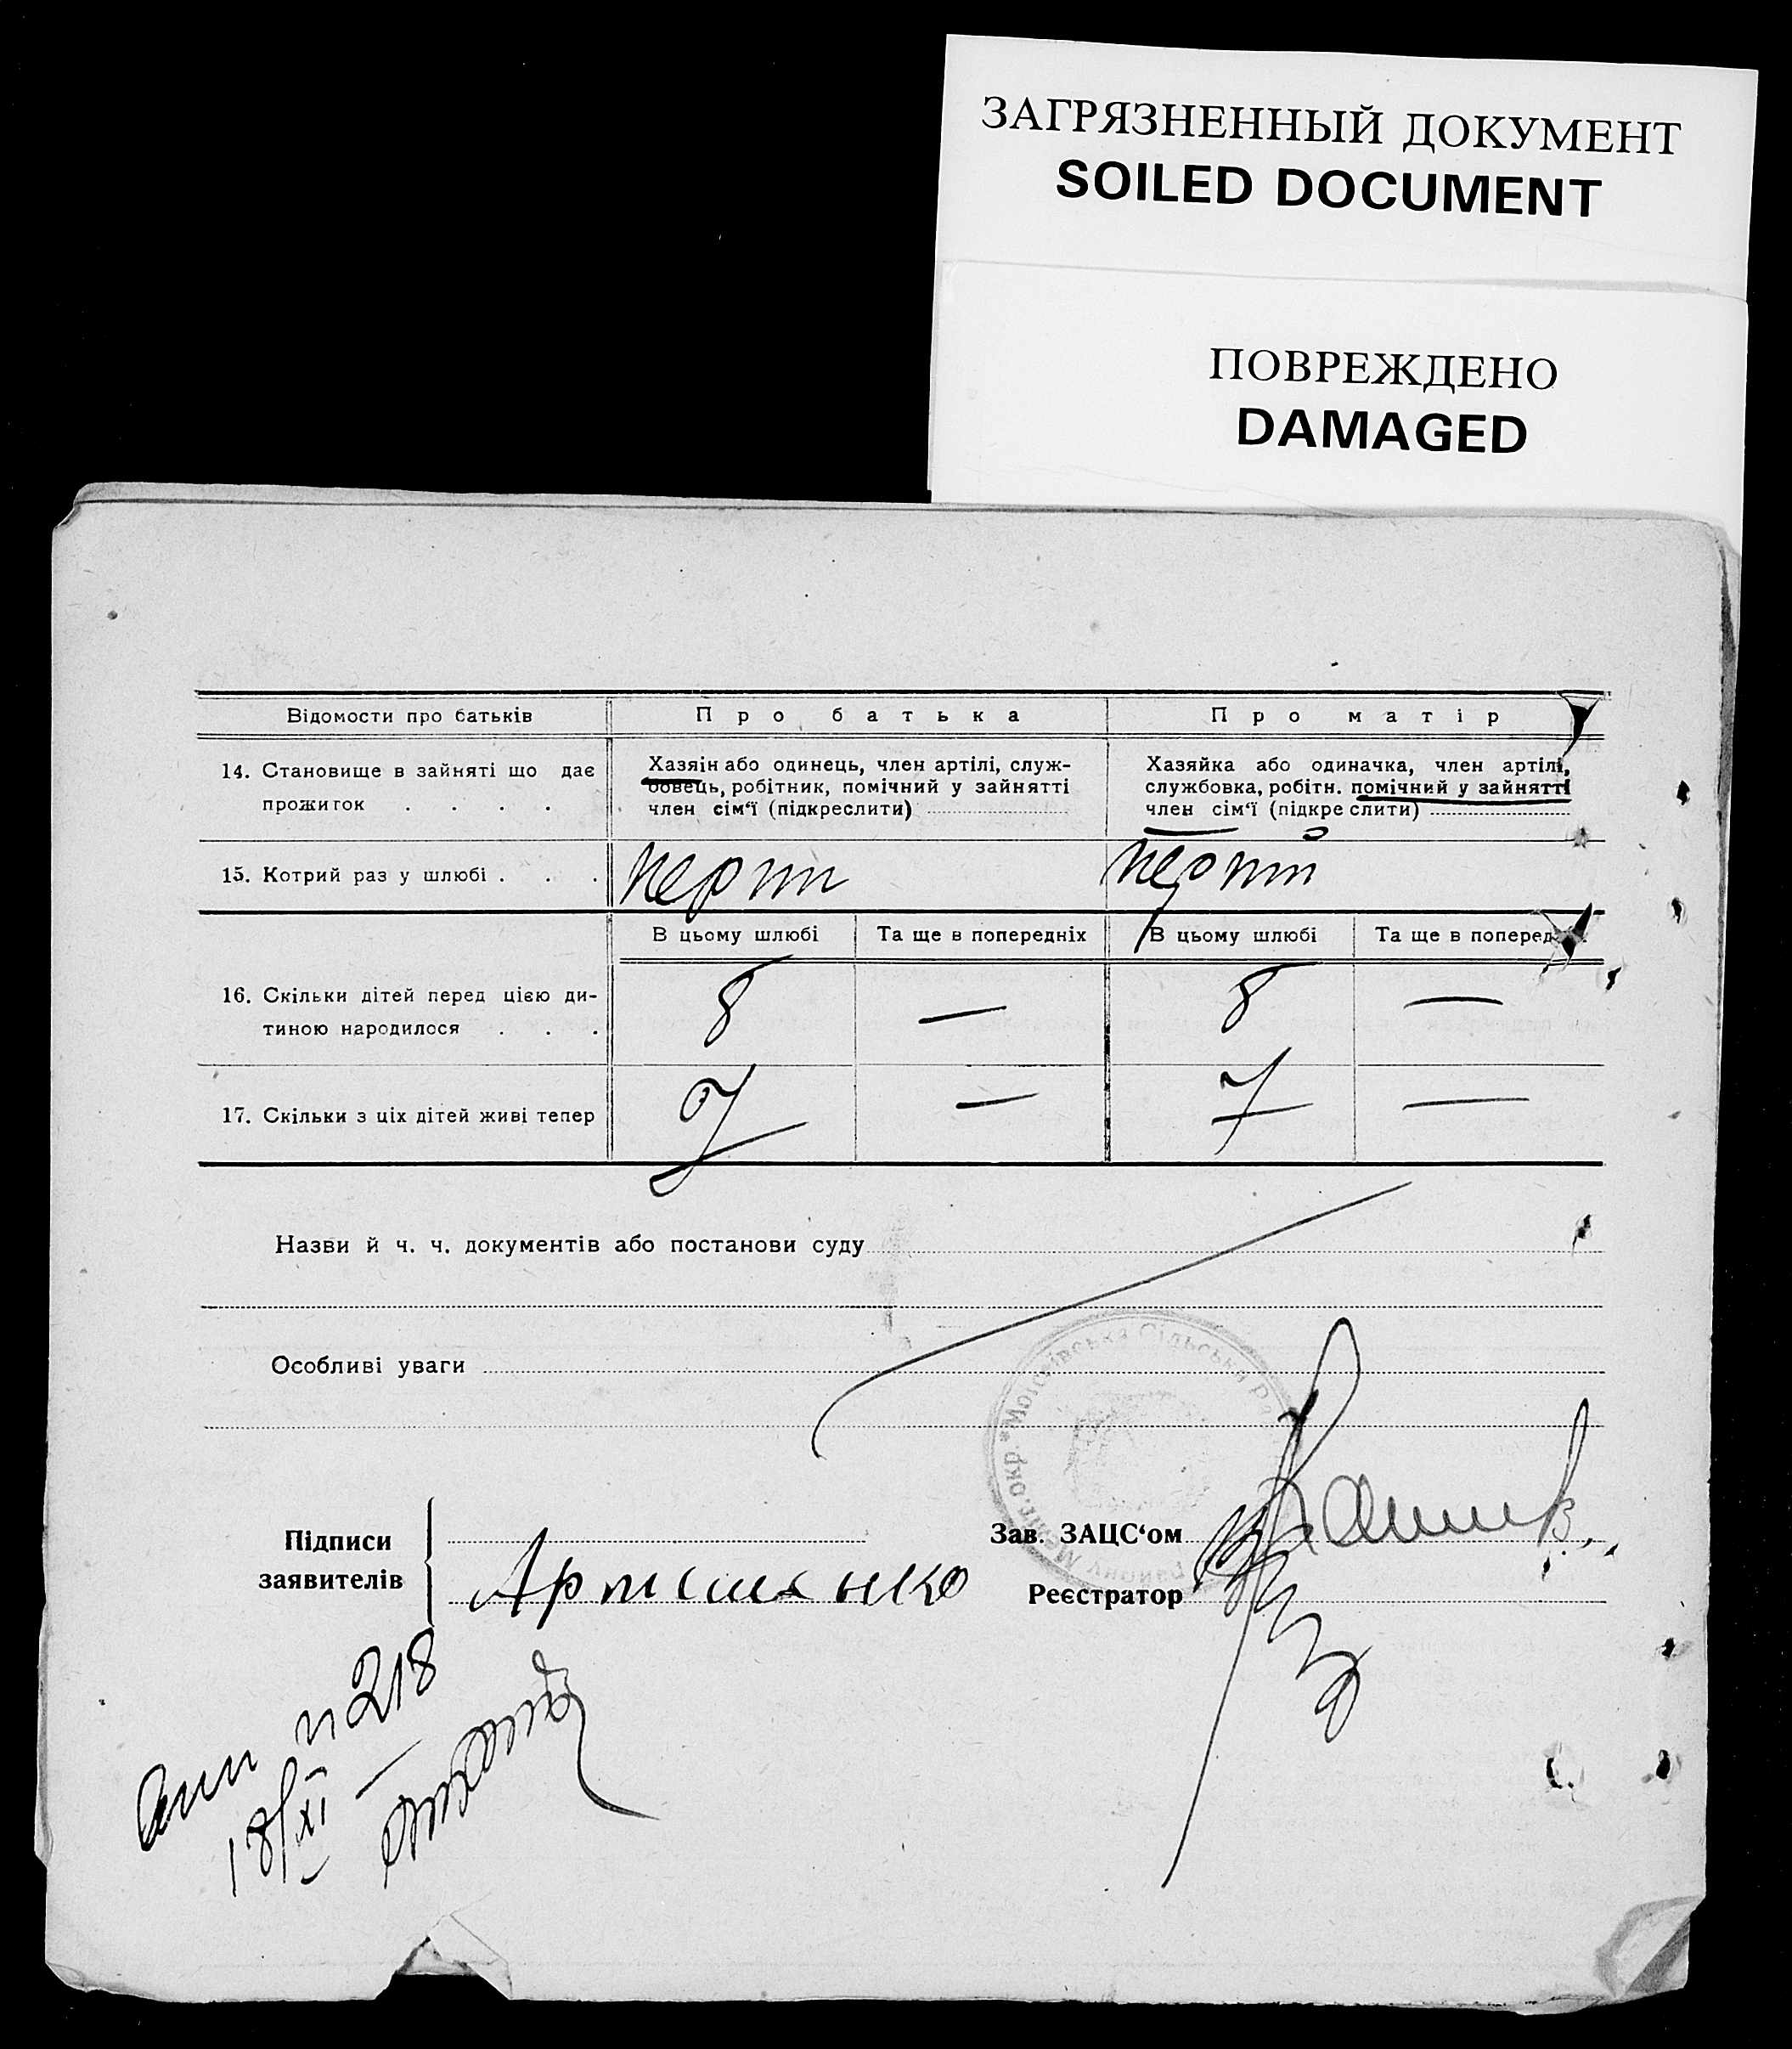 ЗАГРЯЗНЕННЫЙ ДОКУМЕНТ
SOILED DOCUMENT
ПОВРЕЖДЕНО
DAMAGED
Відомости про батьків
Про батька
Про матір
14. Становище в зайняті що дає
прожиток . . . .
Хазяін або одинець, член артілі, служ-
бовець, робітник, помічний у зайнятті
член сім'ї (підкреслити)
Хазяйка або одиначка, член артілі,
службовка, робітн. помічний у зайнятті
член сім'ї (підкреслити)
15. Котрий раз у шлюбі . . .
В цьому шлюбі
Та ще в попередніх
В цьому шлюбі
Та ще в поперед
16. Скільки дітей перед цією ди-
тиною народилося . . .
8
—
8
—
17. Скільки з ціх дітей живі тепер
7
—
7
—
Назви й ч. ч. документів або постанови суду
Особливі уваги
Сільська
окр.
району
Підписи
заявителів
Зав. ЗАЦС'ом
Реєстратор
218
18/XI